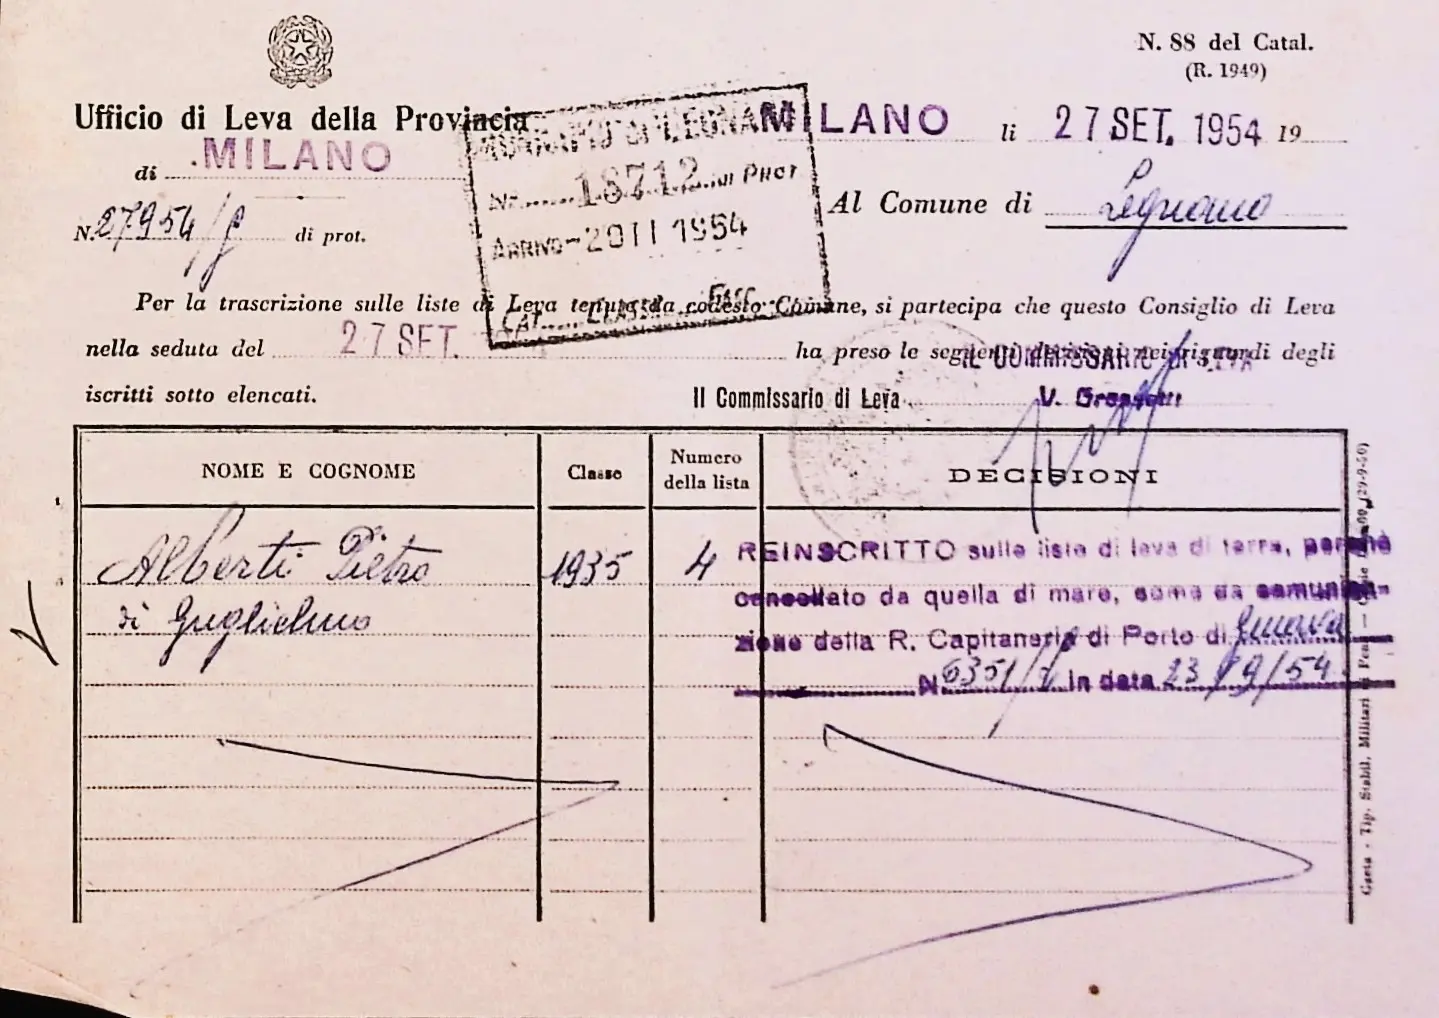 N. 88 del Catal.
(R. 1949)
Ufficio di Leva della Provincia
di MILANO
N. 27954/ di prot.
MUNICIPIO DI LEGNANO
N. 18712 DI PROT
ARRIVO - 2 OTT 1954
CAT. CLASSE FASC.
MILANO li 27 SET. 1954 19
Al Comune di Legnano
Per la trascrizione sulle liste di Leva tenute da codesto Comune, si partecipa che questo Consiglio di Leva
nella seduta del 27 SET. ha preso le seguenti decisioni nei riguardi degli
iscritti sotto elencati.
IL COMMISSARIO DI LEVA
Il Commissario di Leva V.
NOME E COGNOME Classe Numero della lista DECISIONI
Alberti Pietro 1935 4 REINSCRITTO sulle liste di leva di terra, perchè
di Guglielmo
cancellato da quella di mare, come da comunica-
zione della R. Capitaneria di Porto di Genova
N. 6351/ in data 23/9/54
Gaeta - Tip. Stabil. Militari di Pena